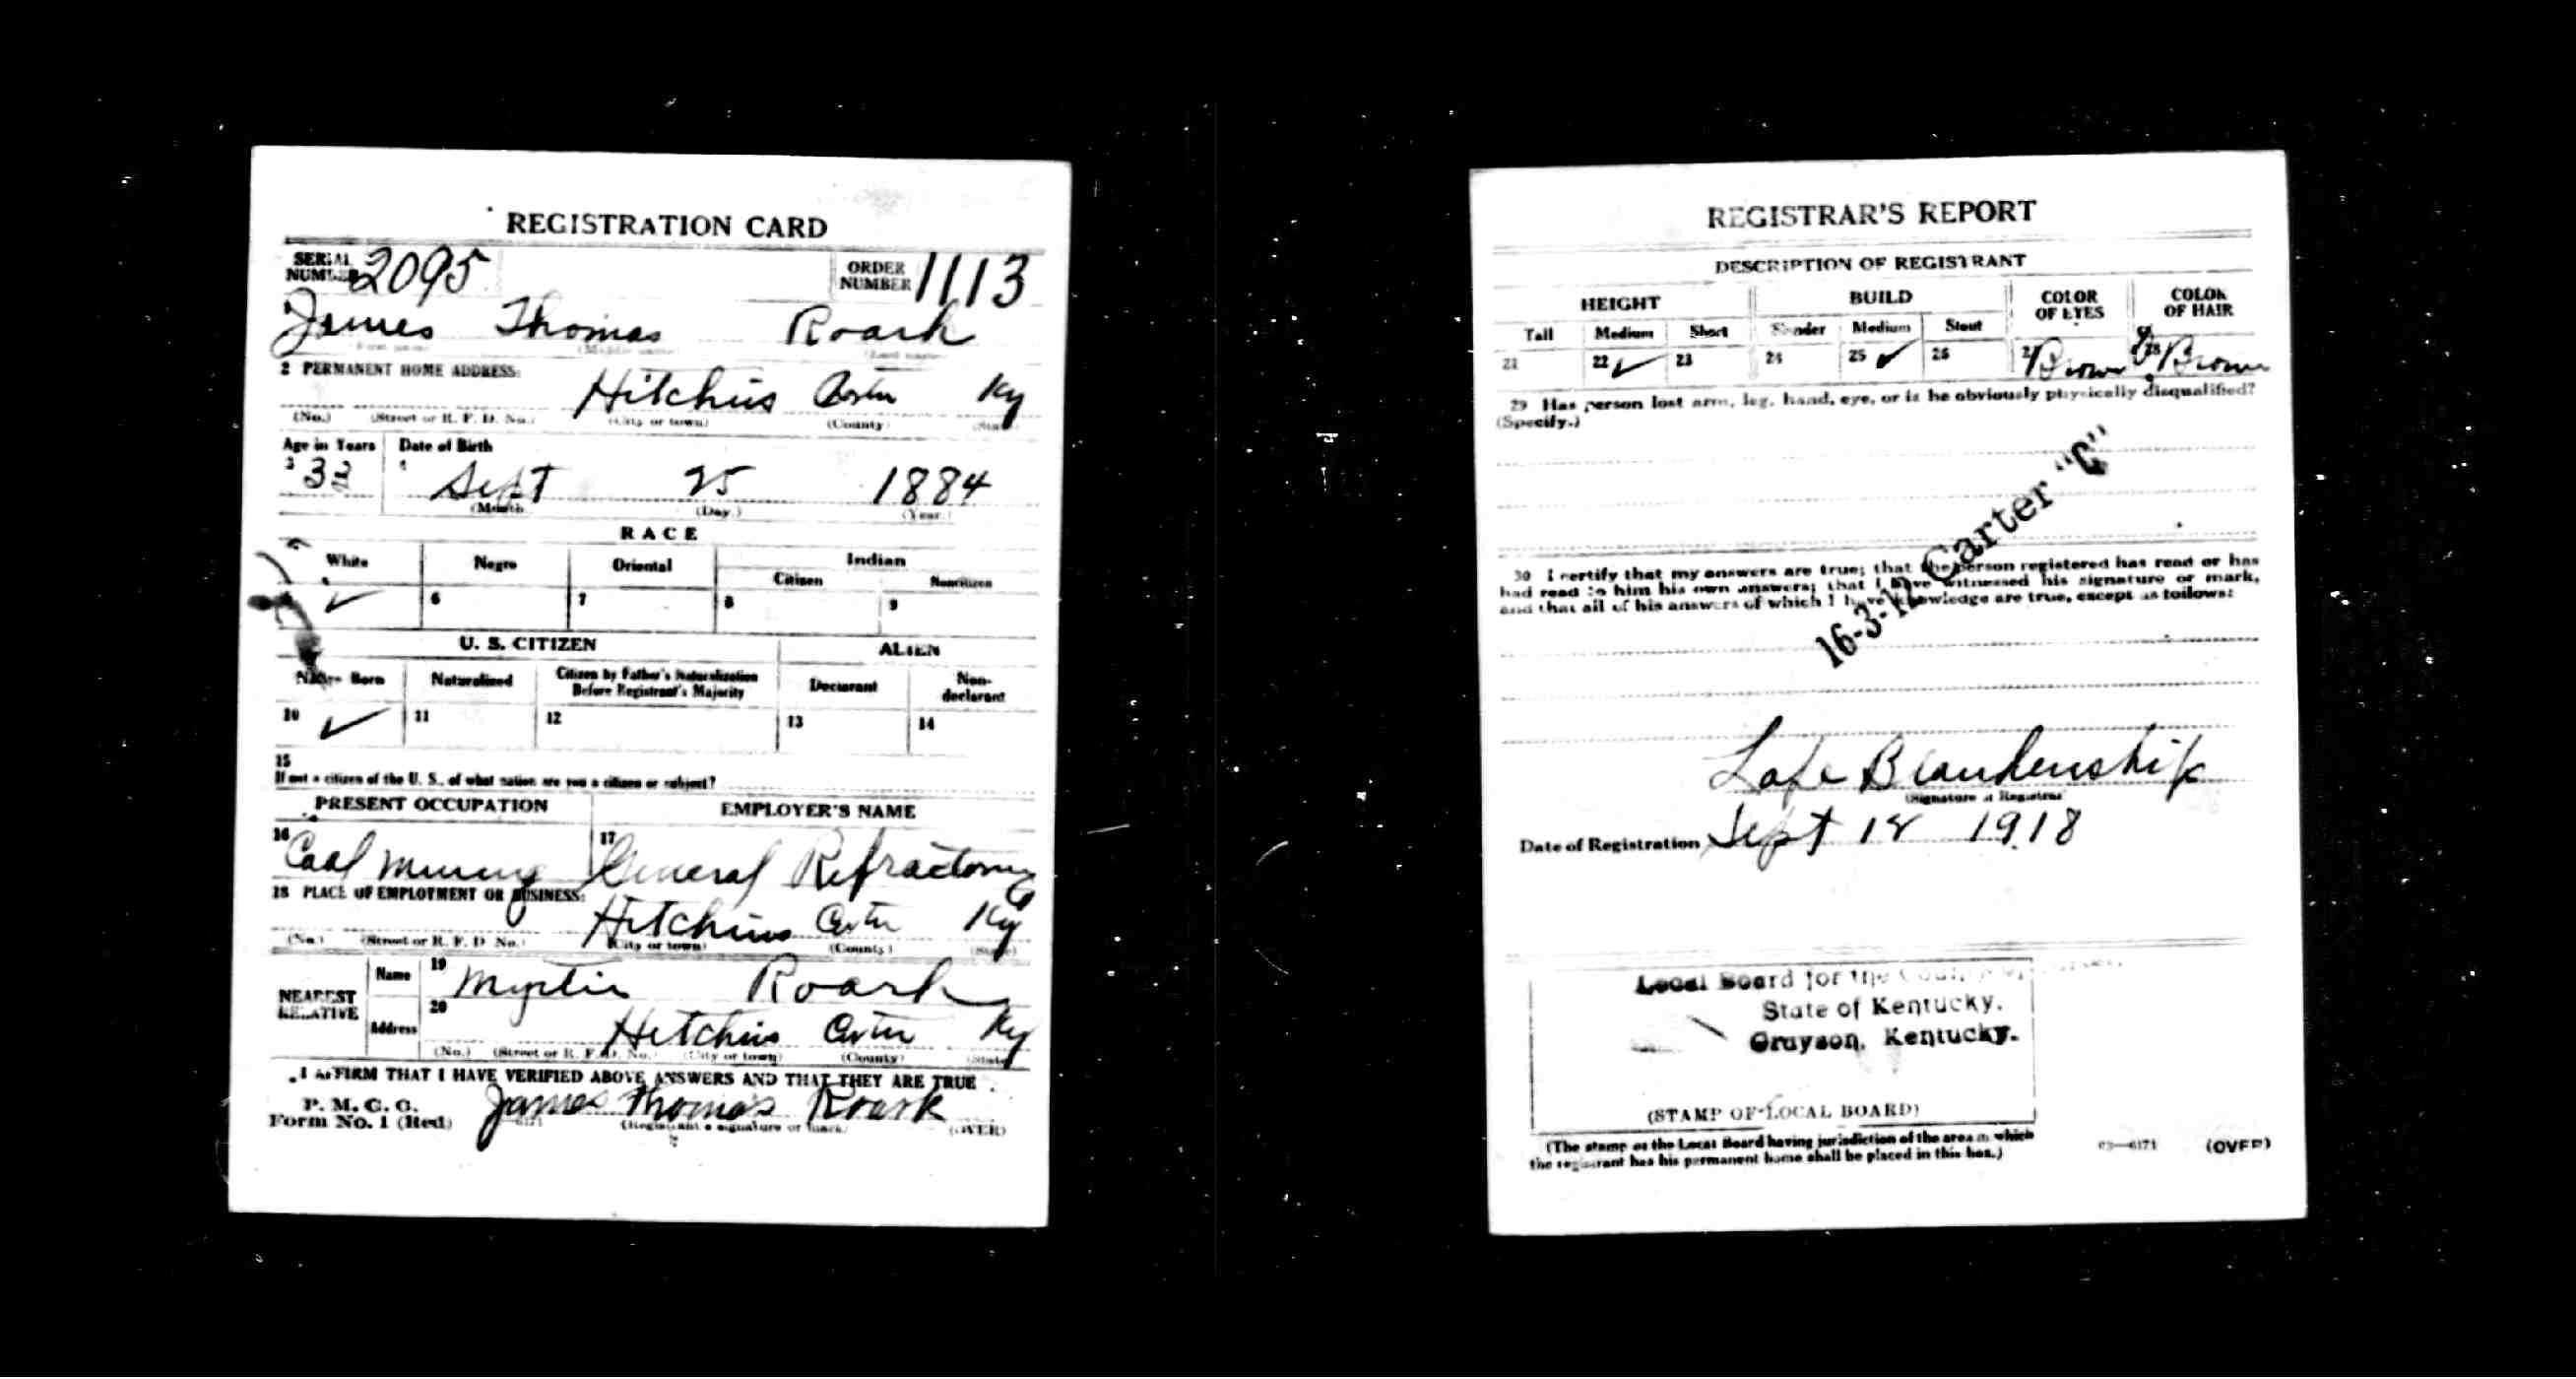 REGISTRATION CARD
SERIAL NUMBER 2095 ORDER NUMBER 1113
James Thomas Roark
(Middle name) (Last name)
2 PERMANENT HOME ADDRESS:
Hitchins Carter Ky
(No.) (Street or R. F. D. No.) (City or town) (County) (State)
Age in Years Date of Birth
3 33 4 Sept 25 1884
(Month) (Day.) (Year.)
RACE
White Negro Oriental Indian
Citizen Noncitizen
✓ 6 7 8 9
U. S. CITIZEN ALIEN
Native Born Naturalized Citizen by Father's Naturalization Before Registrant's Majority Declarant Non-declarant
10 ✓ 11 12 13 14
15
If not a citizen of the U. S., of what nation are you a citizen or subject?
PRESENT OCCUPATION EMPLOYER'S NAME
16 Coal Mining 17 General Refractory
18 PLACE OF EMPLOYMENT OR BUSINESS:
Hitchins Carter Ky
(No.) (Street or R. F. D. No.) (City or town) (County) (State)
NEAREST RELATIVE Name 19 Myrtie Roark
Address 20 Hitchins Carter Ky
(No.) (Street or R. F. D. No.) (City or town) (County) (State)
I AFFIRM THAT I HAVE VERIFIED ABOVE ANSWERS AND THAT THEY ARE TRUE
P. M. G. O.
Form No. 1 (Red) James Thomas Roark
(Registrant's signature or mark) (OVER)
REGISTRAR'S REPORT
DESCRIPTION OF REGISTRANT
HEIGHT BUILD COLOR OF EYES COLOR OF HAIR
Tall Medium Short Slender Medium Stout
21 22 ✓ 23 24 25 ✓ 26 27 Brown 28 Brown
29 Has person lost arm, leg, hand, eye, or is he obviously physically disqualified?
(Specify.)
16-3-12 Carter "C"
30 I certify that my answers are true; that the person registered has read or has
had read to him his own answers; that I have witnessed his signature or mark,
and that all of his answers of which I have knowledge are true, except as follows:
Lafe Blankenship
(Signature of Registrar)
Date of Registration Sept 12 1918
Local Board for the County of
State of Kentucky.
Grayson, Kentucky.
(STAMP OF LOCAL BOARD)
(The stamp of the Local Board having jurisdiction of the area in which
the registrant has his permanent home shall be placed in this box.)
03—6171 (OVER)